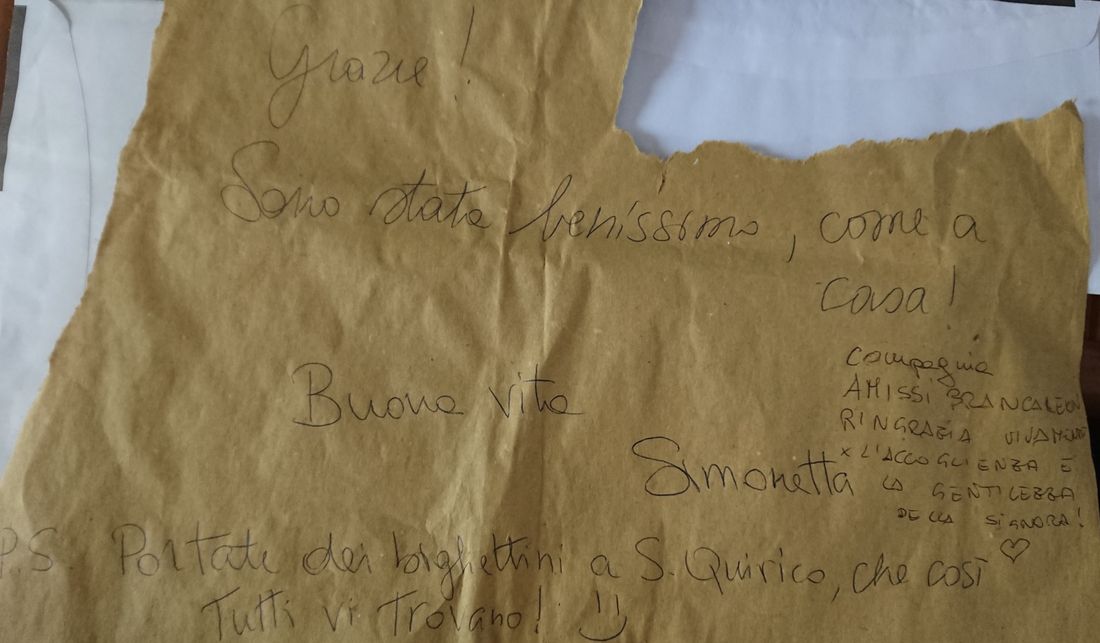 Grazie!
Sono stata benissimo, come a
casa!
Buona vita
Simonetta
compagnia
AMISSI BRANCALEON
RINGRAZIA VIVAMENTE
x L'ACCOGLIENZA E
LA GENTILEZZA
DELLA SIGNORA!
♡
P.S. Portate dei bighettini a S. Quirico, che così
Tutti vi trovano! :)